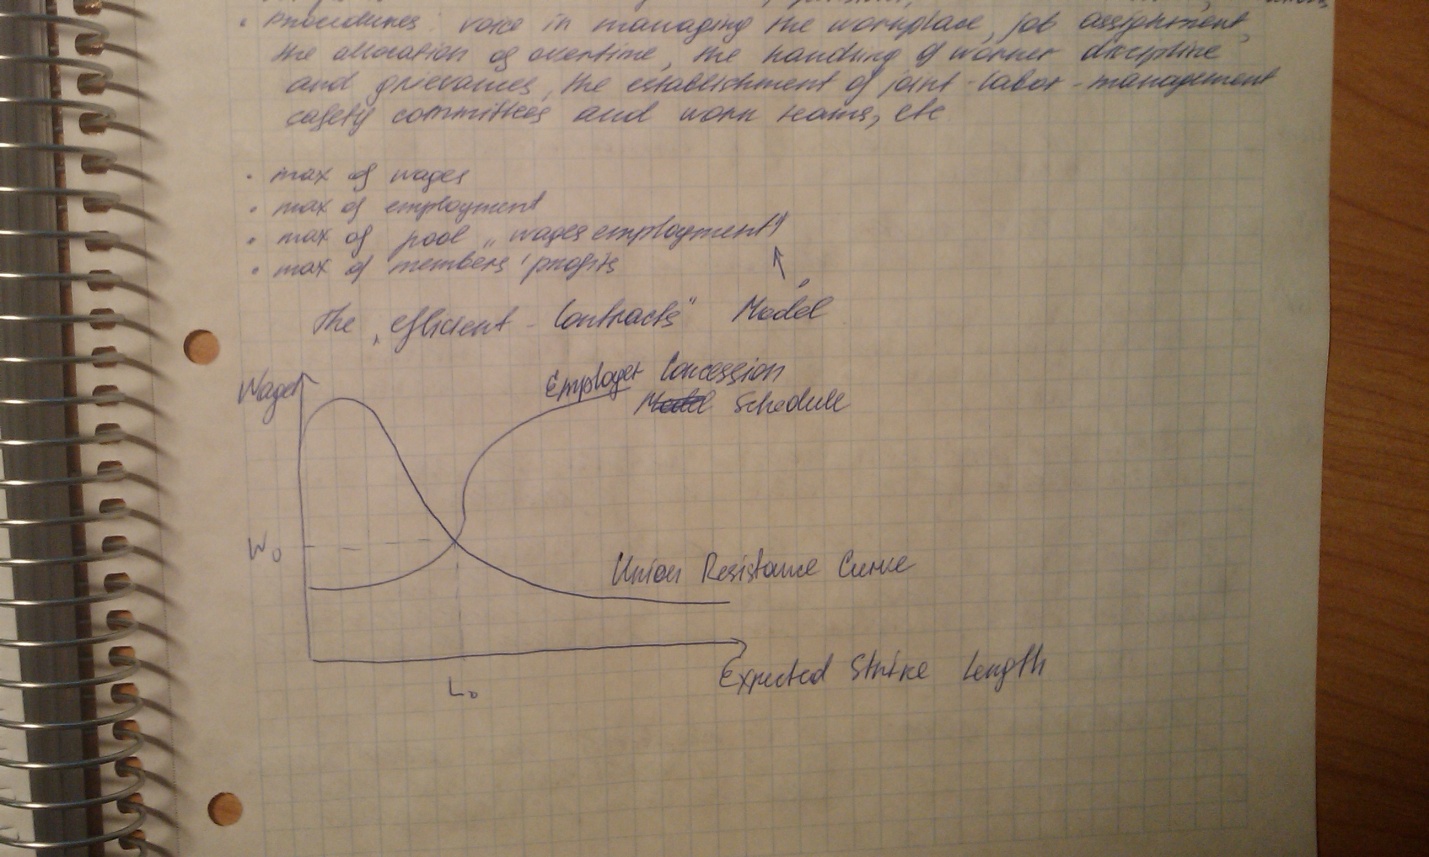 • Procedures: voice in managing the workplace, job assignment,
the allocation of overtime, the handling of worker discipline
and grievances, the establishment of joint-labor-management
safety committees and work teams, etc
• max of wages
• max of employment
• max of pool „wages employment"
• max of members' profits
The „efficient-Contracts" Model
Wage
Employer Concession
Model Schedule
W₀
Union Resistance Curve
L₀
Expected Strike Length